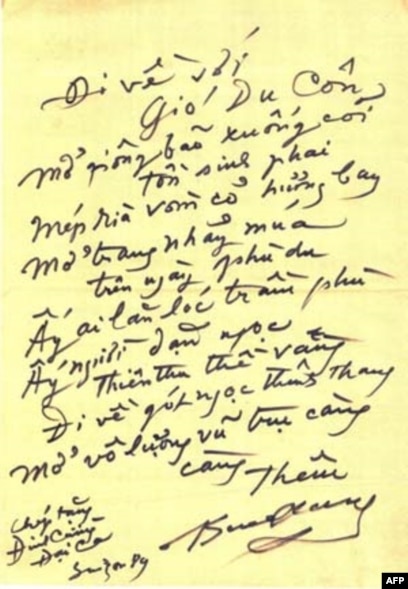 Đi về với
Gió Du Côn
Mở giông bão xuống cõi
tồn sinh phai
Mép rìa vòm cỏ hướng bay
Mở trang nhảy múa
trên ngày phù du
Ấy ai lần lóc trầm phù
Ấy người dạo ngọc
thiên thu thế vàng
Đi về gót ngọc thênh thang
Mở vô lượng vũ trụ càng
càng thêm
Chép tặng
Đinh Cường
Đại Ca
Saigon 89
AFP